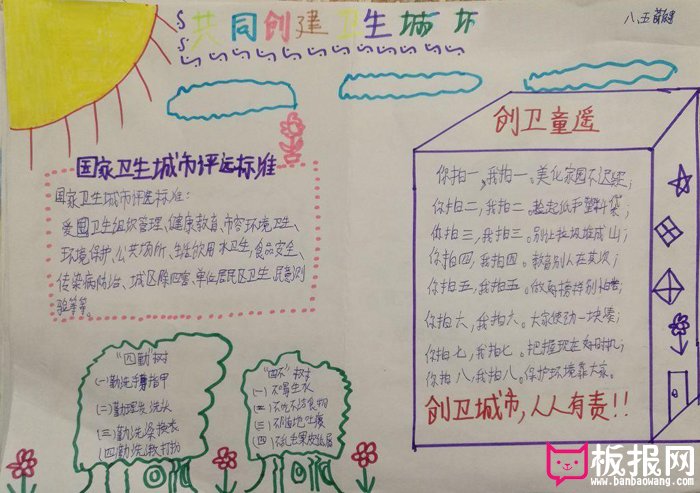 共同创建卫生城市
八、五
国家卫生城市评选标准
国家卫生城市评选标准:
爱国卫生组织管理、健康教育、市容环境卫生、
环境保护、公共场所、生活饮用水卫生、食品安全、
传染病防治、城区除四害、单位居民区卫生、民意测
验等等。
"四勤"树
(一)勤洗手剪指甲
(二)勤理发洗头
(三)勤洗澡换衣
(四)勤洗打扫
"四不"树
(一)不喝生水
(二)不吃不洁食物
(三)不随地吐痰
(四)不乱丢果皮纸屑
创卫童遥
你拍一,我拍一。美化家园不迟疑;
你拍二,我拍二。捡起纸和塑料袋;
你拍三,我拍三。别让垃圾堆成山;
你拍四,我拍四。教育别人在其次;
你拍五,我拍五。做好榜样别怕苦;
你拍六,我拍六。大家使劲一块凑;
你拍七,我拍七。把握现在好时机;
你拍八,我拍八。保护环境靠大家。
创卫城市,人人有责!!
板报网
www.banbaowang.com